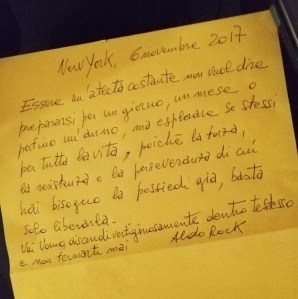 New York, 6 novembre 2017
Essere un'atleta costante non vuol dire
prepararsi per un giorno, un mese o
perfino un'anno, ma esplorare se stessi
per tutta la vita, poiché la forza,
la resistenza e la perseveranza di cui
hai bisogno la possiedi già, basta
solo liberarla.
Vai Uomo, discendi vertiginosamente dentro te stesso
e non fermarti mai
Aldo Rock